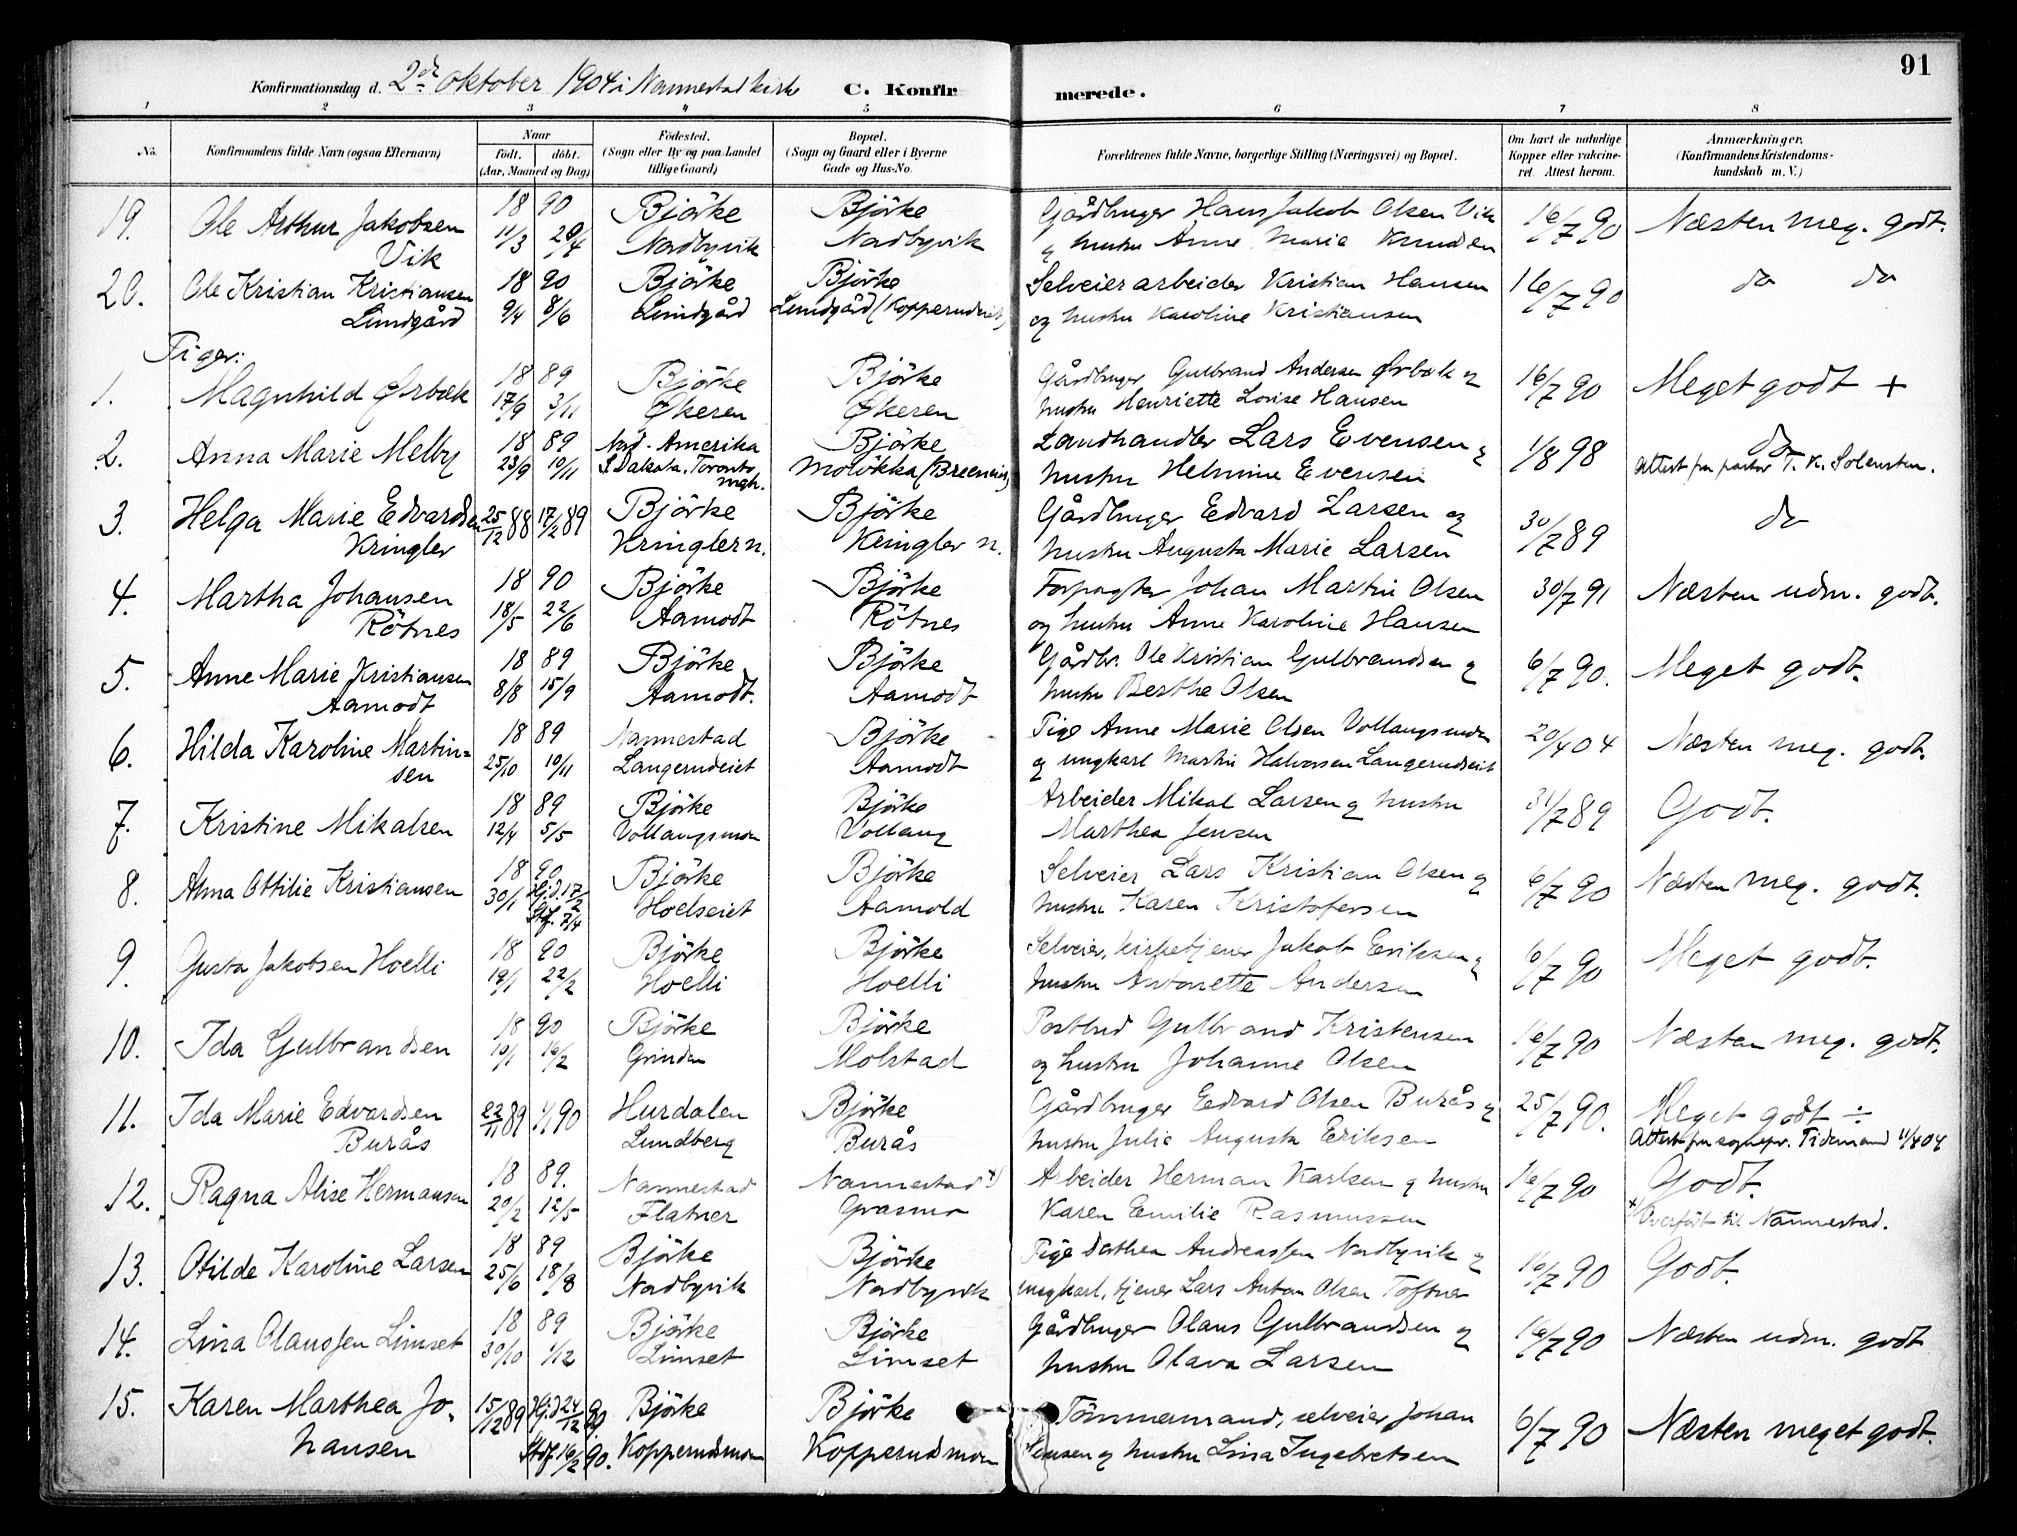 91
Konfirmationsdag d. 2den Oktober 1904 i Nannestad kirke C. Konfirmerede.
1 2 3 4 5 6 7 8
No. Konfirmandens fulde Navn (ogsaa Efternavn) Naar födt. döbt. (Aar, Maaned og Dag) Födested. (Sogn eller By og paa Landet tillige Gaard) Bopæl. (Sogn og Gaard eller i Byerne Gade og Hus-No. Forældrenes fulde Navne, borgerlige Stilling (Næringsvei) og Bopæl. Om havt de naturlige Kopper eller vakcineret. Attest herom. Anmærkninger. (Konfirmandens Kristendomskundskab m. V.)
19. Ole Arthur Jakobsen 18 90 Björke Björke Gårdbruger Hans Jakob Olsen Vik 16/7 90 Næsten meg. godt.
Vik 11/3 20/4 Nordbyvik Nordbyvik og hustru Anne Marie Knudsen
20. Ole Kristian Kristiansen 18 90 Björke Björke Selveier arbeider Kristian Hansen 16/7 90 do do
Lundgård 9/4 8/6 Lundgård Lundgård (Kopperudeiet) og hustru Karoline Kristiansen
Piger:
1. Magnhild Ørbæk 18 89 Björke Björke Gårdbruger Gulbrand Andersen Ørbæk og 16/7 90 Meget godt +
17/9 3/11 Økeren Økeren hustru Henriette Lovise Hansen
2. Anna Marie Melby 18 89 Nord-Amerika Björke Landhandler Lars Evensen og 1/8 98 do
23/9 10/11 S. Dakota, Toronto mgh. Molökka (Breeneiet) hustru Helmine Evensen Attest fra pastor T. K. Solensten.
3. Helga Marie Edvardsen 25/12 88 17/2 89 Björke Björke Gårdbruger Edvard Larsen og 30/7 89 do
Kringler Kringler n. Kringler n. hustru Augusta Marie Larsen
4. Martha Johansen 18 90 Björke Björke Forpagter Johan Martin Olsen 30/7 91 Næsten udm. godt.
Rötnes 18/5 22/6 Aamodt Rötnes og hustru Anne Karoline Hansen
5. Anne Marie Kristiansen 18 89 Björke Björke Gårdbr. Ole Kristian Gulbrandsen og 6/7 90. Meget godt.
Aamodt 8/8 15/9 Aamodt. Aamodt hustru Berthe Olsen
6. Hilda Karoline Martin= 18 89 Nannestad Björke Pige Anne Marie Olsen Vollaugsmoen 20/4 04 Næsten meg. godt.
sen 25/10 10/11 Langerudeiet Aamodt og ungkarl Martin Halvorsen Langerudseiet
7. Kristine Mikalsen 18 89 Björke Björke Arbeider Mikal Larsen og hustru 31/7 89 Godt.
12/4 5/5 Vollaugsmoen Vollaug Marthea Jensen
8. Alma Ottilie Kristiansen 18 90 Björke Björke Selveier Lars Kristian Olsen og 6/7 90 Næsten meg. godt.
30/1 Hjd. 17/2 Stf. 7/4 Hoelseiet Aamold hustru Karen Kristofersen
9. Gusta Jakobsen Hoelli 18 90 Björke Björke Selveier, kirketjener Jakob Eriksen og 6/7 90 Meget godt.
19/1 22/2 Hoelli Hoelli hustru Antonette Andersen
10. Ida Gulbrandsen 18 90 Björke Björke Postbud Gulbrand Kristensen 16/7 90 Næsten meg. godt.
10/1 16/2 Grinden Molstad og hustru Johanne Olsen
11. Ida Marie Edvardsen 22/11 89 1/1 90 Hurdalen Björke Gårdbruger Edvard Olsen Burås og 25/7 90. Meget godt ÷
Burås Lundberg Burås hustru Julie Augusta Eriksen Attest fra sognepr. Tidemand 11/4 04
12. Ragna Alise Hermansen 18 89. Nannestad Nannestad x) Arbeider Herman Karlsen og hustru 16/7 90 Godt.
20/2 12/5 Flatner Grasmo Karen Emilie Rasmussen x) Overfört til Nannestad.
13. Otilde Karoline Larsen 18 89 Björke Björke Pige Dorthea Andreassen Nordbyvik og 16/7 90 Godt.
25/6 18/8 Nordbyvik Nordbyvik ungkarl, tjener Lars Anton Olsen Toftner
14. Lina Olaussen Limset 18 89 Björke Björke Gårdbruger Olaus Gulbrandsen og 16/7 90 Næsten udm. godt
30/10 1/12 Limset Limset hustru Olava Larsen
15. Karen Marthea Jo- 15/12 89 Hjd 24/2 90. Björke Björke Tömmermand, selveier Johan 6/7 90 Næsten meget godt.
hansen Stdf 16/2 90. Kopperudmoen Kopperudmoen Hansen og hustru Lina Ingebretsen